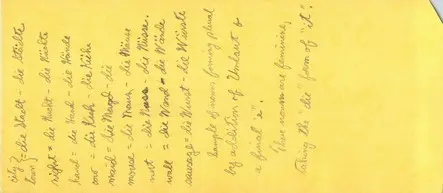 city } = die Stadt - die Städte
town
night = die Nacht - die Nächte
hand = die Hand - die Hände
cow = die Kuh - die Kühe
maid = die Magd - die
mouse = die Maus - die Mäuse
nut = die Nuss - die Nüsse.
wall = die Wand = die Wände
sausage = die Wurst - die Würste
Sample of nouns forming plural
by addition of Umlaut &
a final "e".
These nouns are feminine,
taking the "die" form of